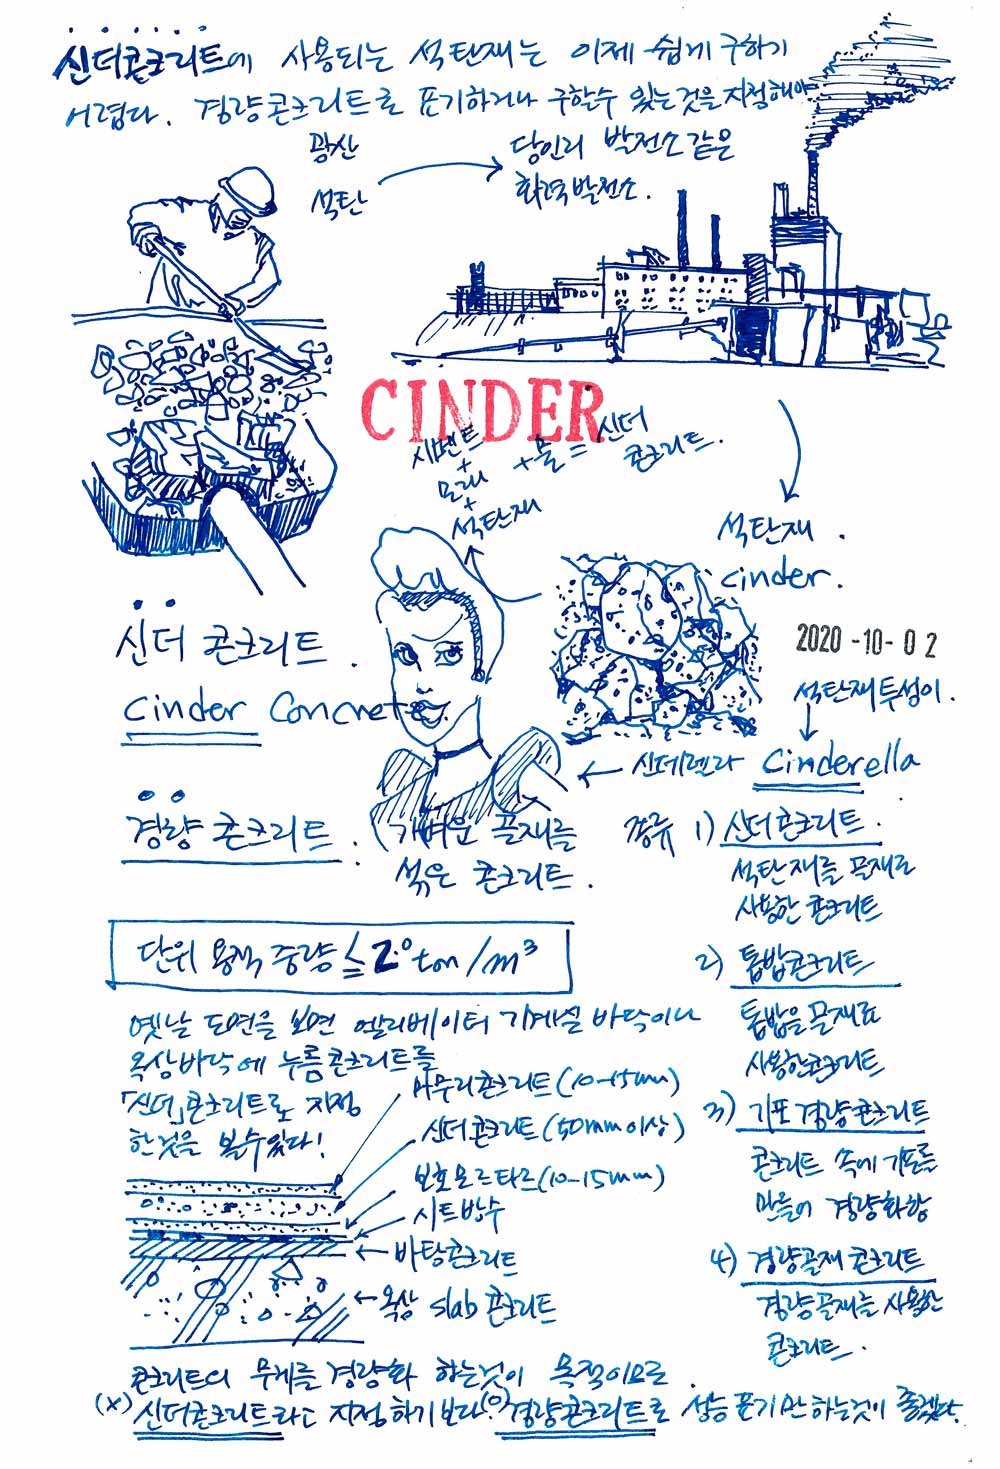 신더콘크리트에 사용되는 석탄재는 이제 쉽게 구하기
어렵다. 경량콘크리트로 표기하거나 구할수 있는것을 지정해야
광산
석탄
당인리 발전소같은
화력발전소.
CINDER
시멘트
+
모래
+
석탄재
+물=
신더
콘크리트.
석탄재.
cinder.
2020-10-02
석탄재투성이.
신데렐라 Cinderella
신더 콘크리트.
Cinder Concrete.
경량 콘크리트. (가벼운 골재를
섞은 콘크리트.
단위 용적 중량 ≦ 2.0 ton/m³
옛날 도면을 보면 엘리베이터 기계실 바닥이나
옥상바닥에 누름콘크리트를
「신더」콘크리트로 지정
한것을 볼수있다!
마무리콘크리트(10-15mm)
신더콘크리트(50mm이상)
보호모르타르(10-15mm)
시트방수
바탕콘크리트
옥상 slab 콘크리트
종류 1) 신더콘크리트.
석탄재를 골재로
사용한 콘크리트
2) 톱밥콘크리트
톱밥을 골재로
사용한콘크리트
3) 기포경량콘크리트
콘크리트 속에 기포를
만들어 경량화함
4) 경량골재 콘크리트
경량골재를 사용한
콘크리트.
콘크리트의 무게를 경량화 하는것이 목적이므로
(x) 신더콘크리트라고 지정하기보다 (o) 경량콘크리트로 성능표기만하는것이 좋겠다.